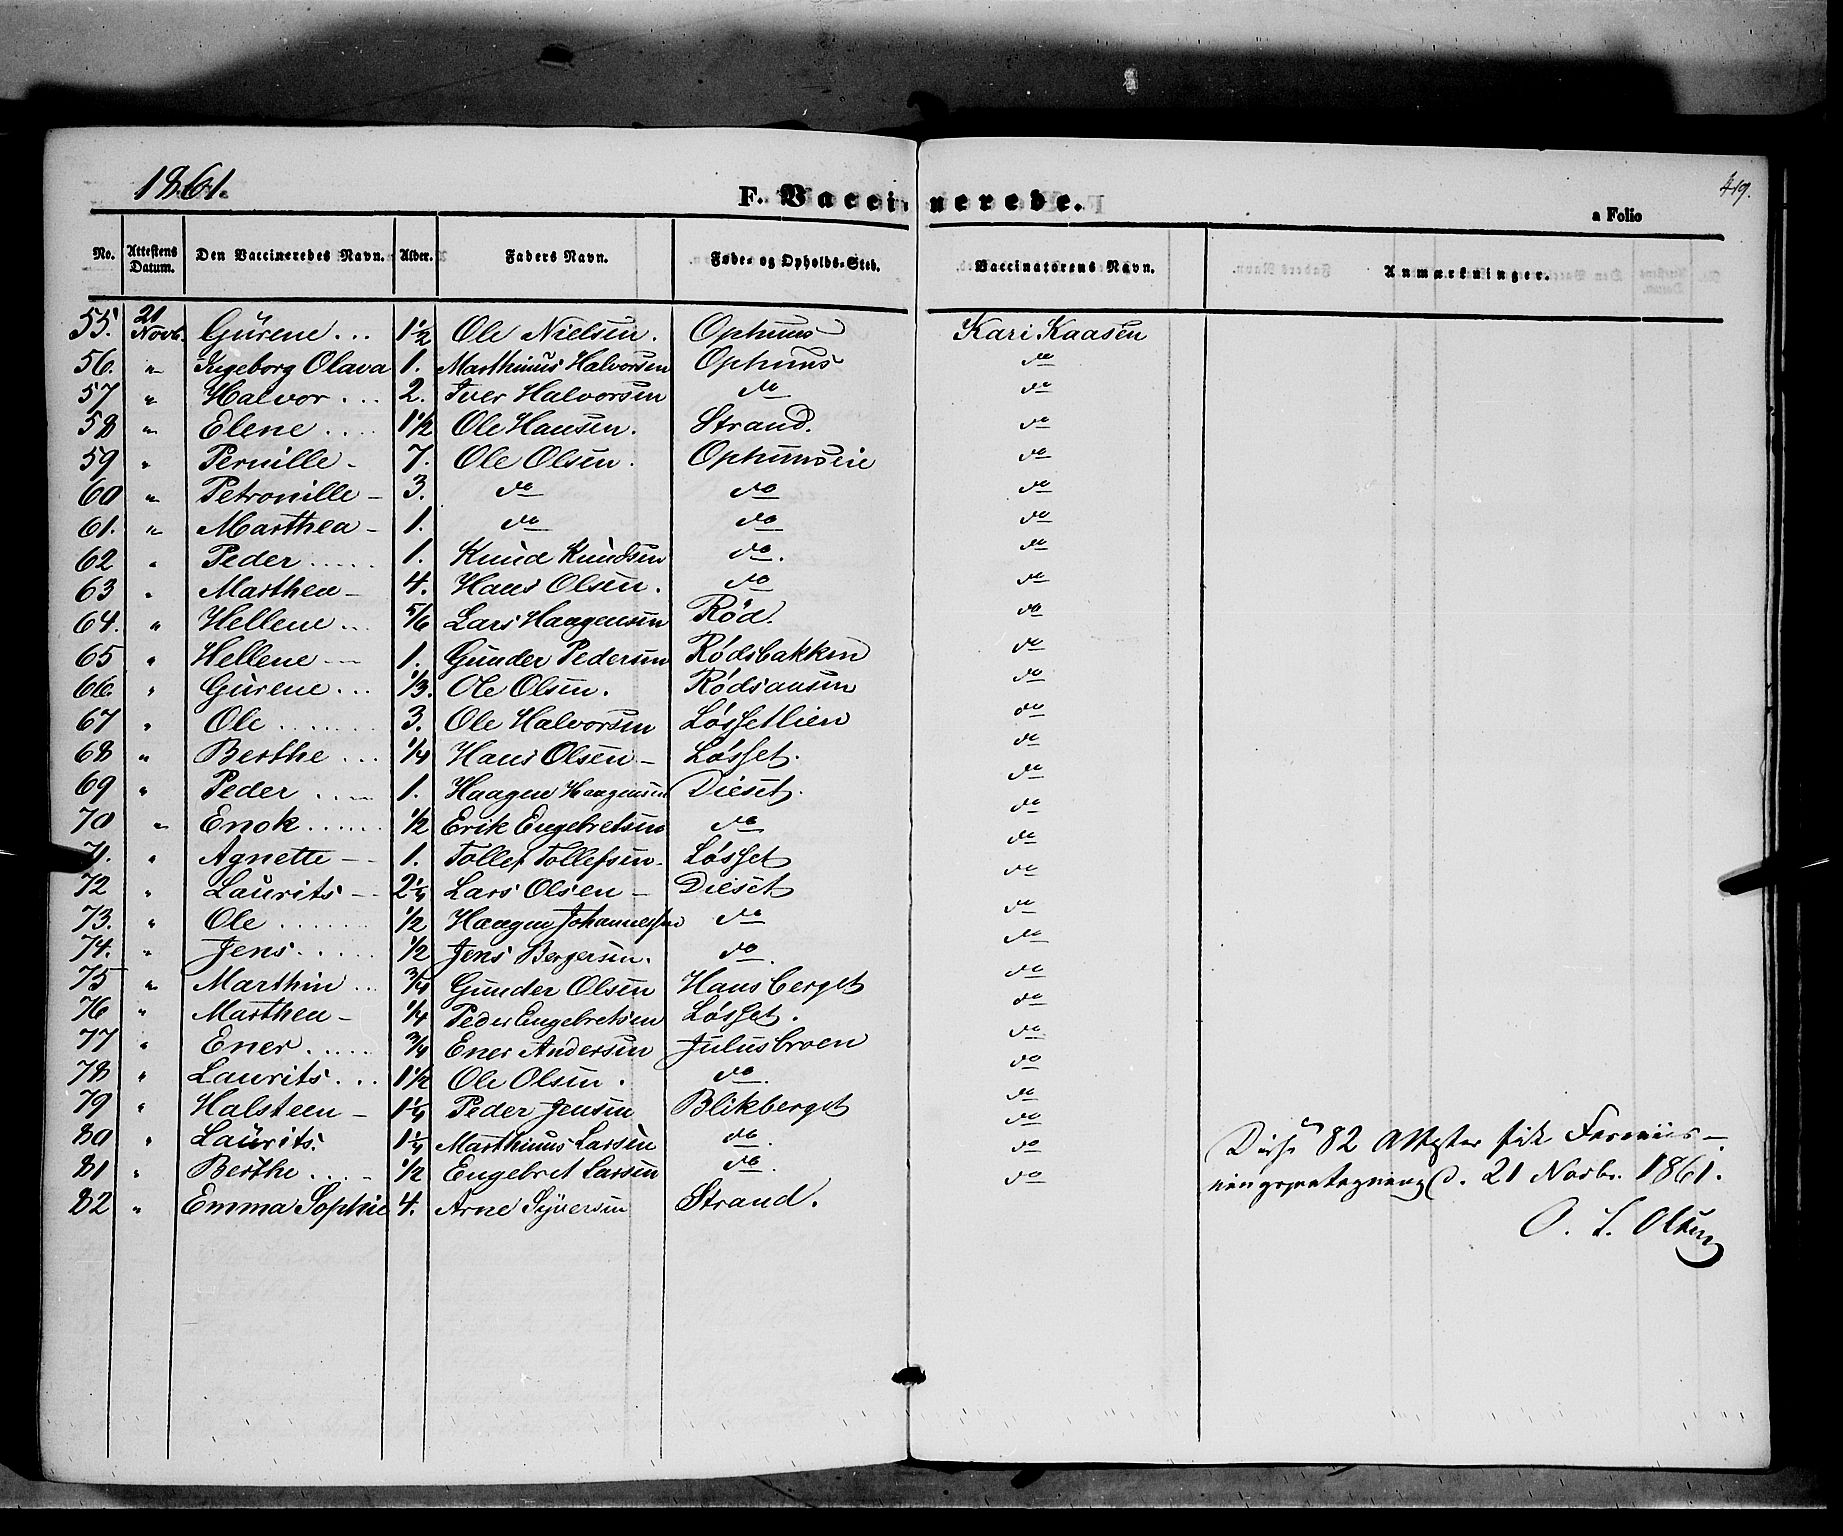 1861.
F. Vaccinerede.
419.
a Folio
No. Attestens Datum. Den Vaccineredes Navn. Alder. Faders Navn. Føde- og Opholds-Sted. Vaccinatorens Navn. Anmærkninger.
55. 21 Novb. Gürene ... 1 1/2 Ole Nielsen. Ophuus Kari Kaasen
56. " Ingeborg Olava 1. Marthinus Halvorsen Ophuus do
57 " Halvor ... 2. Iver Halvorsen do do
58 " Elene .... 1 1/2 Ole Hansen. Strand. do
59 " Pernille - 7. Ole Olsen. Ophuuseie do
60 " Petronille - 3. do do do
61. " Marthea - 1. do do do
62 " Peder ..... 1. Knud Knudsen do. do
63 " Marthea - 4. Hans Olsen. do do
64. " Hellene ... 5/6 Lars Haagensen Rød. do
65 " Hellene --- 1. Gunder Pedersen Rødsbakken do
66 " Gürene ... 1/3. Ole Olsen. Rødsaasen do
67 " Ole ....... 3. Ole Halvorsen Løssetlien do
68 " Berthe ... 1/4 Hans Olsen - Løsset. do
69 " Peder .... 1. Haagen Haagensen Dieset. do
70 " Enok ...... 1/2 Erik Engebretsen do do
71. " Agnette - - 1. Tollef Tollefsen. Løsset do
72 " Laurits - - 2 1/4 Lars Olsen - Dieset do
73. " Ole ....... 1/2 Haagen Johannessen do do
74. " Jens ..... 1/2 Jens Bergersen. do. do
75 " Marthin ... 3/4 Gunder Olsen Hansberget do
76 " Marthea - 1/4 Peder Engebretsen Løsset. do
77 " Ener ..... 3/4 Ener Andersen Julusbroen do
78 " Laurits ... 1 1/2 Ole Olsen. do. do
79 " Halsteen - 1 1/4 Peder Jensen Blikberget do
80 " Laurits. 1 1/4 Marthinus Larsen do. do
81 " Berthe .... 1/2 Engebret Larsen do. do
82 " Emma Sophie 4. Arne Syversen Strand. do
Disse 82 Attester fik
d. 21 Novbr. 1861.
O. L. Olsen